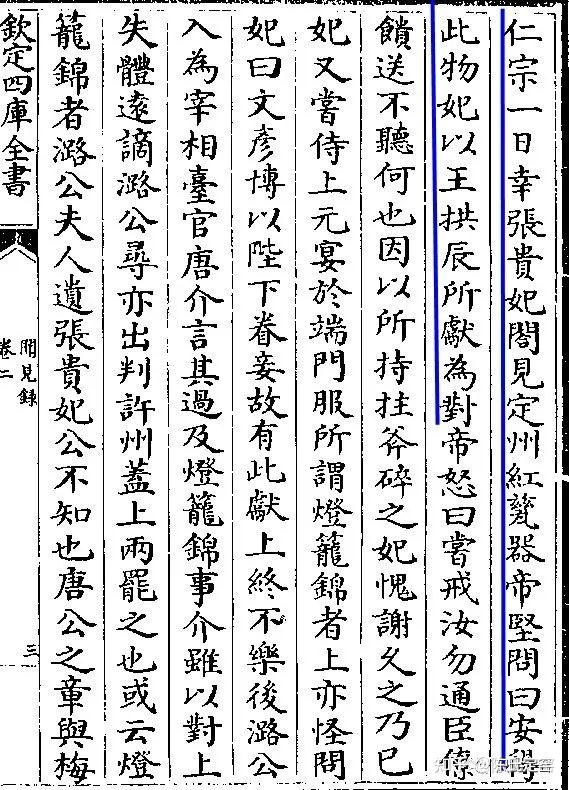 仁宗一日幸張貴妃閤見定州紅甆器帝堅問曰安得
此物妃以王拱辰所獻為對帝怒曰嘗戒汝勿通臣僚
饋送不聽何也因以所持拄斧碎之妃愧謝久之乃已
妃又嘗侍上元宴於端門服所謂燈籠錦者上亦怪問
妃曰文彥博以陛下眷妾故有此獻上終不樂後潞公
入為宰相臺官唐介言其過及燈籠錦事介雖以對上
失體逺謫潞公尋亦出判許州蓋上兩罷之也或云燈
籠錦者潞公夫人遺張貴妃公不知也唐公之章與梅
欽定四庫全書
聞見録
卷二
三
知乎